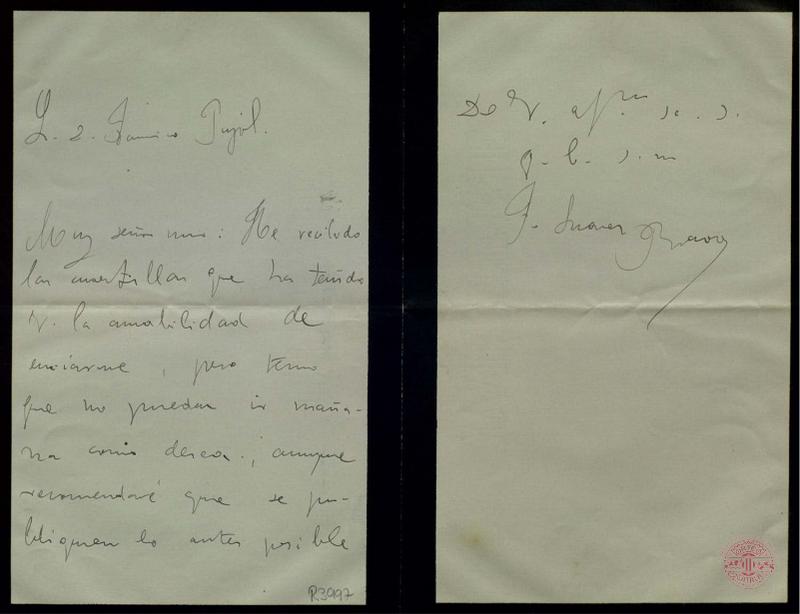 S. D. Francisco Pujol.
Muy señor mio: He recibido
las cuartillas que ha tenido
V. la amabilidad de
enviarme, pero temo
que no puedan ir maña-
na como desea; aunque
recomendaré que se pu-
bliquen lo antes posible
R.3997
De V. afmo s. s.
q. b. s. m
F. Suarez Bravo